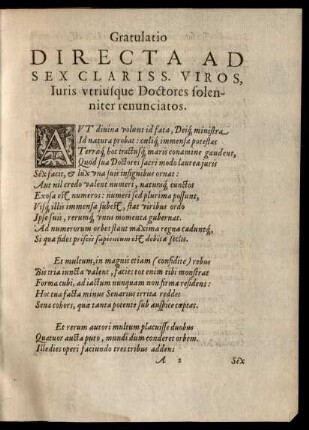 Gratulatio
DIRECTA AD
SEX CLARISS. VIROS,
Iuris vtriusque Doctores solen-
niter renunciatos.
AVT divina volunt id fata, Deiq́ ministra
Id natura probat: cæliq́ immensa potestas
Terraq́ hoc tractusq́ maris conamine gaudent,
Quòd sua Doctores sacri modo laurea juris
Sex facit, & lux una suis insignibus ornat:
Aut nil credo valent numeri, naturaq́ cunctos
Exosa est numeros: numeri sed plurima possunt,
Visq́ illis immensa subest, stat viribus ordo
Ipse suis, rerumq́ unus momenta gubernat.
Ad numerorum orbes stant maxima regna caduntq́,
Si qua fides priscis sapientum est debita sectis.
Et multum, in magnis etiam (confidite) rebus
Bis tria juncta valent, facies tot enim tibi monstrat
Forma cubi, ad jactum nunquam non firma residens:
Hoc tua facta minus Senarius irrita reddet
Sena cohors, qua tanta potente sub auspice captas.
Et rerum autori multum placuisse duobus
Quatuor aucta puto, mundi dum conderet orbem,
Ille dies operi faciundo tres tribus addens
A 2 Sex